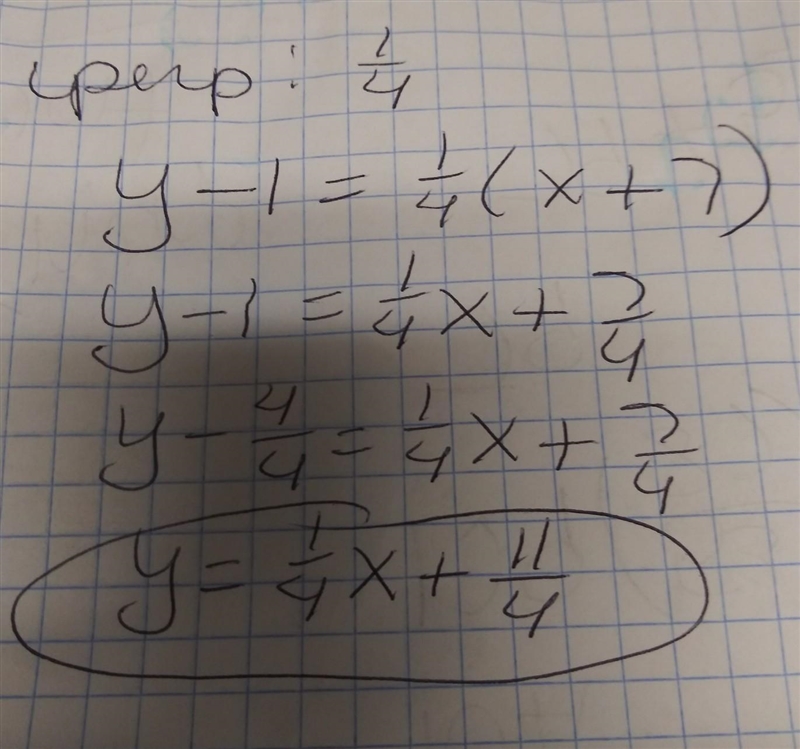 perp: 1/4
y - 1 = 1/4(x + 7)
y - 1 = 1/4x + 7/4
y - 4/4 = 1/4x + 7/4
y = 1/4x + 11/4